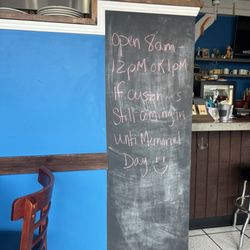 Open 8am -
12pm OR 1pm
If customers
still coming in
until Memorial
Day. :)